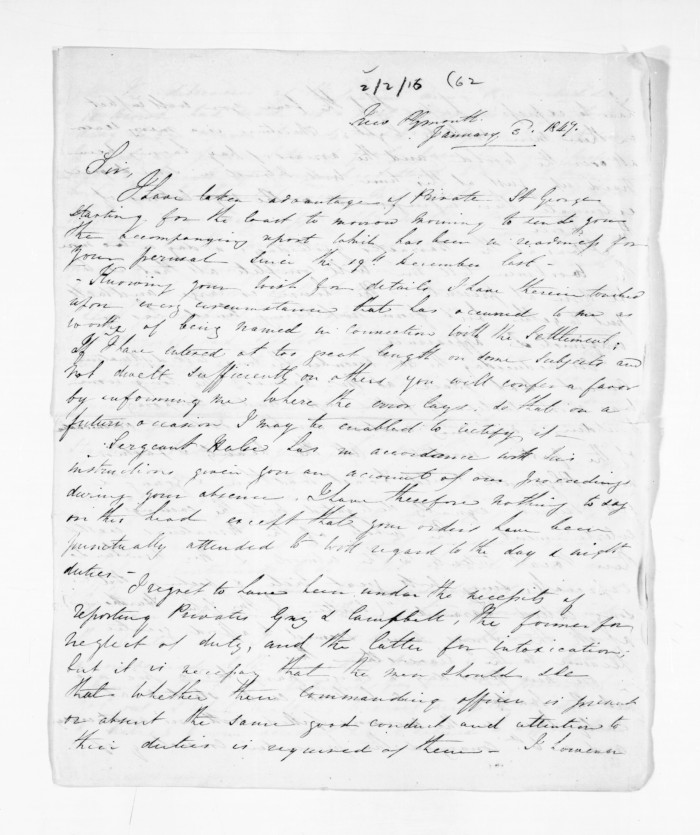 2/2/16 (62
New Plymouth
January 6th 1847.
Sir,
I have taken advantage of Private St George
starting for the coast to morrow morning to send you
the accompanying report which has been in readiness for
your perusal since the 19th December last -
- Knowing your wish for details, I have therein touched
upon every circumstance that has occurred to me as
worthy of being named in connection with the Settlement;
If I have entered at too great length on some subjects and
not dwelt sufficiently on others you will confer a favor
by informing me where the error lays so that on a
future occasion I may be enabled to rectify it -
Sergeant has in accordance with his
instructions given you an account of our proceedings
during your absence. I have therefore nothing to say
on this head except that your orders have been
punctually attended to with regard to the day & night
duties -
I regret to have been under the necessity of
reporting Privates Gray & Campbell, the former for
neglect of duty, and the latter for intoxication;
but it is necessary that the men should see
that whether their Commanding officer is present
or absent the same good conduct and attention to
their duties is required of them - I however